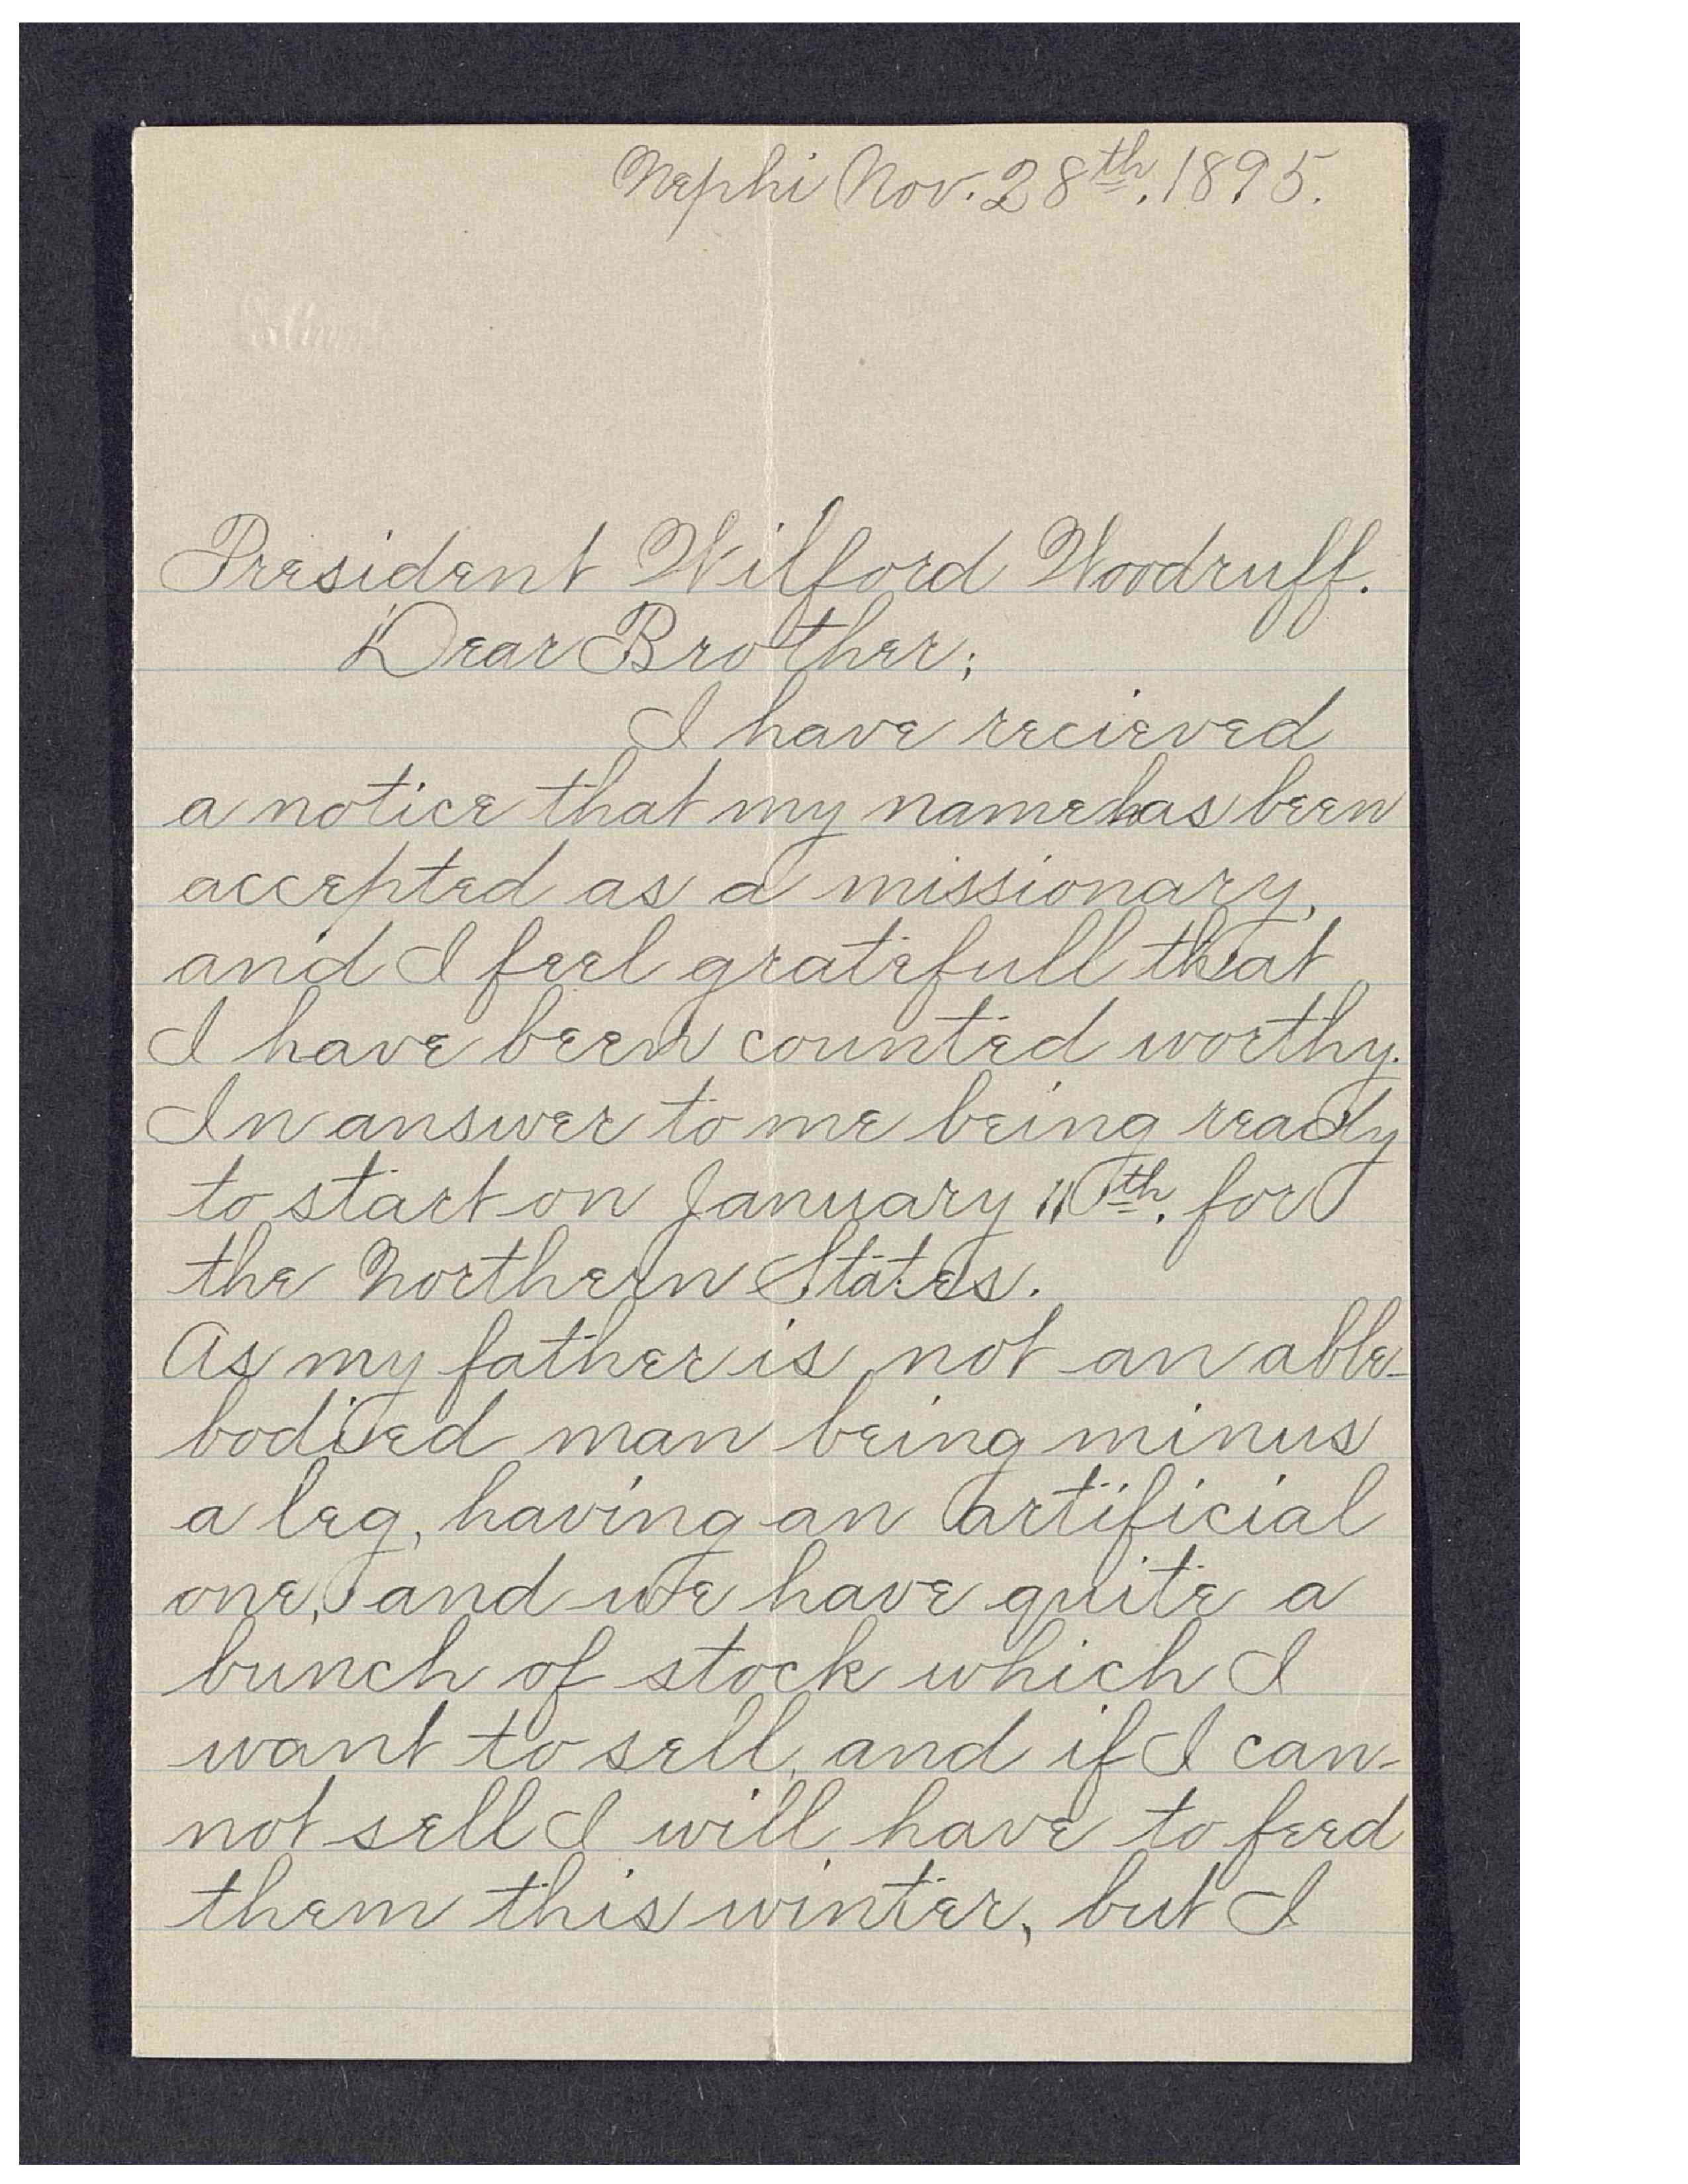 Nephi Nov. 28th. 1895.
President Wilford Woodruff.
Dear Brother;
I have recieved
a notice that my name has been
accepted as a missionary,
and I feel gratefull that
I have been counted worthy.
In answer to me being ready
to start on January 11th. for
the Northern States.
As my father is not an able-
bodied man being minus
a leg, having an artificial
one, and we have quite a
bunch of stock which I
want to sell, and if I can-
not sell I will have to feed
them this winter, but I